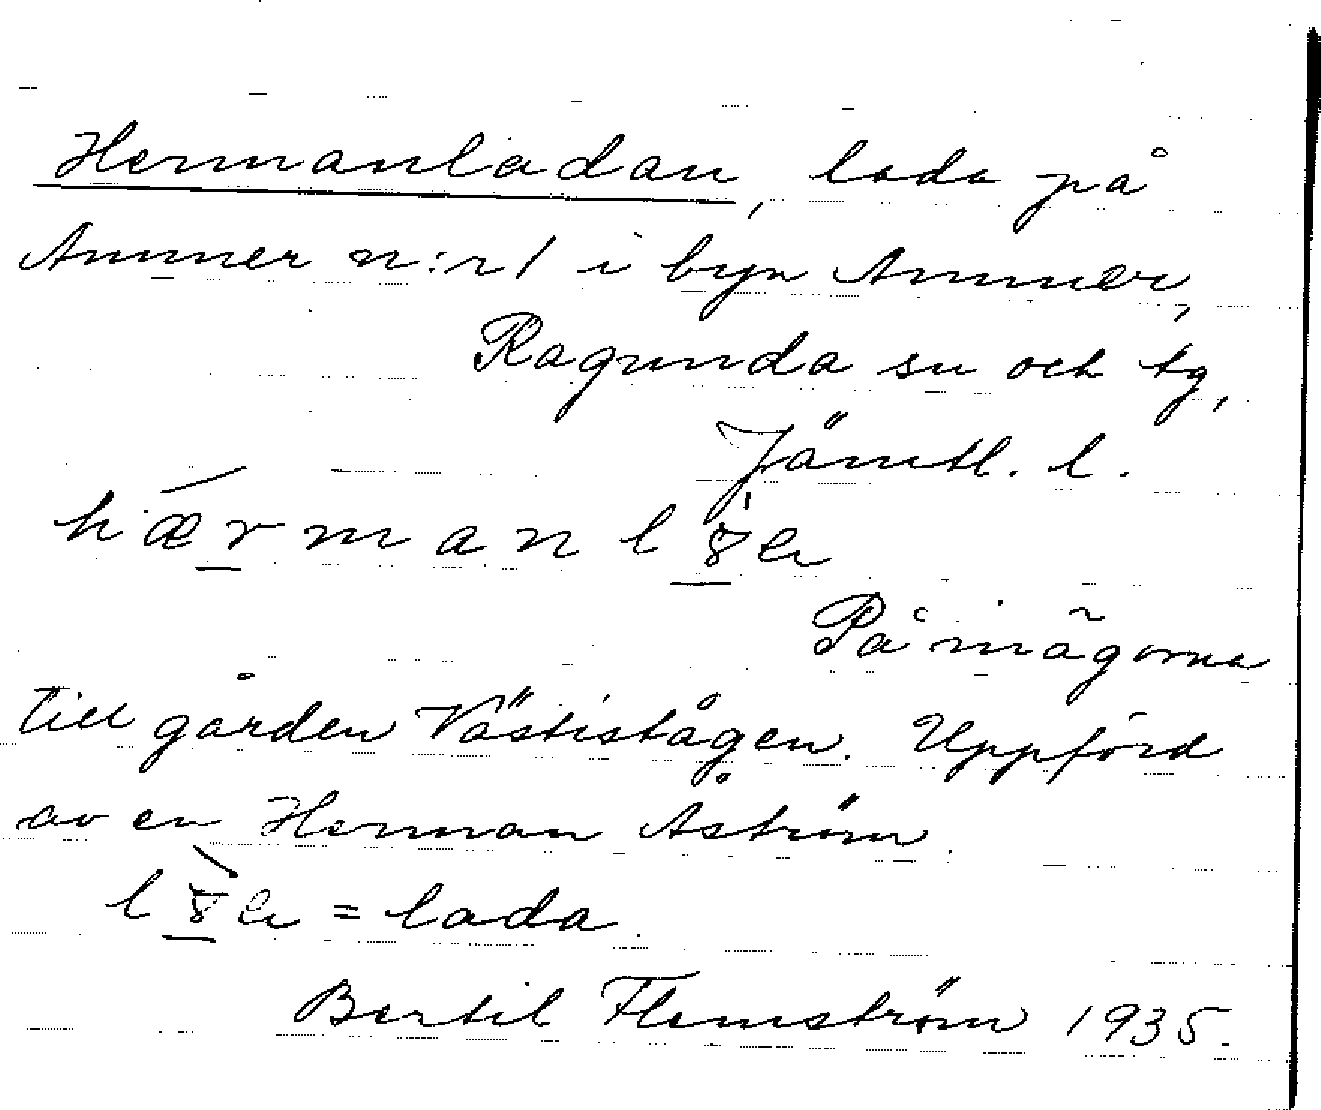 Hermanladan, lada på
Ammer n:r 1 i byn Ammer,
Ragunda sn och tg,
Jämtl. l.
hærmanl
På inägorna
till gården Västistågen. Uppförd
av en Herman Åström.
= lada
Bertil Flemström 1935.